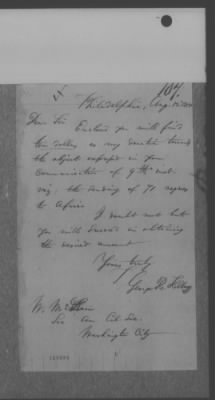 107.
Philadelphia, Aug.
Dear Sir Enclosed you will find
ten dollars as my donation towards
the object expressed in your
communication of 9th inst.
viz. the sending of 71 negroes
to Africa
I doubt not but
you will succeed in obtaining
the desired amount
Yours truly
George
W. McLain
Sec Am. Col. Soc.
Washington City